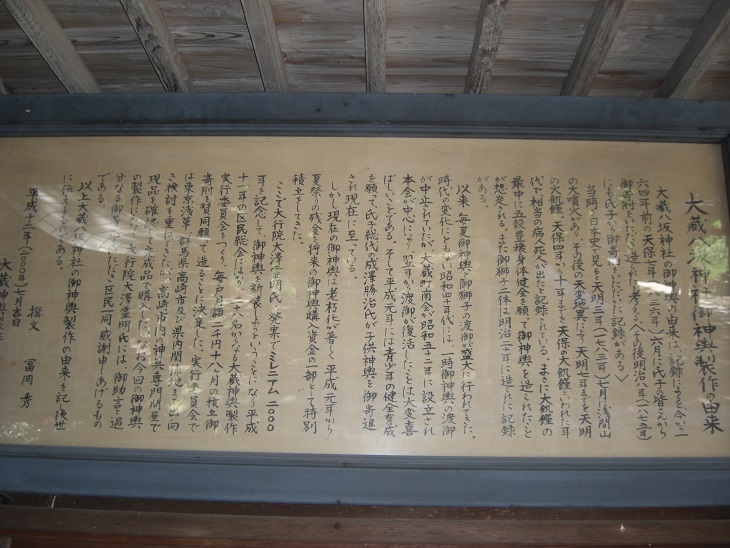 大蔵八坂神社御神輿製作の由来
大蔵八坂神社の御神輿の由来は記録による今から一
六四年前の天保七年(一八三六年)六月に氏子の皆さんから
御寄附をいただき造られたと考える(その後明治八年(一八七五年)
にも氏子から御寄附をいただいた記録がある)
当時の日本史を見ると天明三年(一七八三年)七月に浅間山
の大噴火があり、その後の天変地異により天明七年までを天明
の大飢饉、天保四年から十年までを天保の大飢饉といわれた年
代で相当の病人死人が出たと記録されている。まさに大飢饉の
最中に五穀豊穣身体健全を願って御神輿を造られたこと
が想定される。また御獅子一体は明治二年に造られた記録
がある。
以来、毎夏御神輿と御獅子の渡御が盛大に行われてきた。
時代の変化にともない昭和四十年代には、一時御神輿の渡御
が中止されていたが、大蔵町商会が昭和五十二年に設立され
本会が中心になり翌年から渡御が復活したことは大変喜
ばしいことである。そして平成元年には青少年の健全育成
を願って氏子総代の成澤勝治氏が子供神輿を御寄進
され現在に至っている。
しかし現在の御神輿は老朽化が著しく平成元年から
夏祭りの残金を将来の御神輿購入資金の一部として特別
積立をしてきた。
ここで大行院大澤霊明氏の発案で「ミレニアム二〇〇〇
年を記念して御神輿を新装しよう」ということになり平成
十一年の区民総会にはかり二十八名からなる大蔵神輿製作
実行委員会をつくり、毎戸月額二千円十八ヶ月の積立御
寄附を賛同願って造ることに決定した。実行委員会で
は東京浅草、群馬県高崎市及び県内関係地をまわり向
き検討を重ねてきたが高崎市内の神具専門店で
現品を確認して完成品で購入した。なお今回の御神輿
の製作にあたり大行院大澤霊明氏には御助言と過
分なる御寄進をいただき、区民一同感謝申しあげるもの
である。
以上大蔵八坂神社の御神輿製作の由来を記し後世
に伝えるものである。
平成十二年(二〇〇〇年)七月吉日
撰文 冨岡 秀
大蔵神輿製作